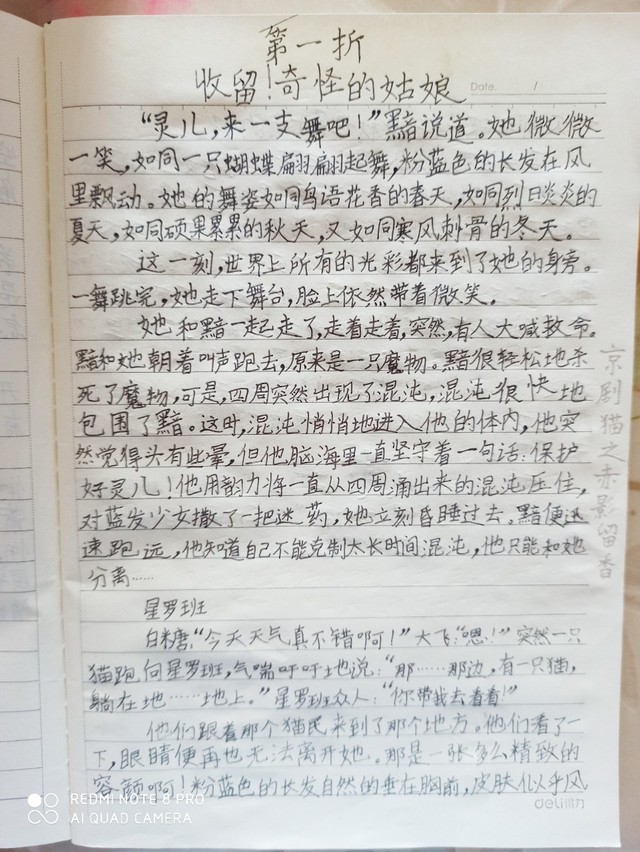 第一折
收留！奇怪的姑娘
Date. /
“灵儿，来一支舞吧！”黯说道。她微微
一笑，如同一只蝴蝶翩翩起舞，粉蓝色的长发在风
里飘动。她的舞姿如同鸟语花香的春天，如同烈日炎炎的
夏天，如同硕果累累的秋天，又如同寒风刺骨的冬天。
这一刻，世界上所有的光彩都来到了她的身旁。
一舞跳完，她走下舞台，脸上依然带着微笑。
她和黯一起走了，走着走着，突然，有人大喊救命。
黯和她朝着叫声跑去，原来是一只魔物。黯很轻松地杀
死了魔物，可是，四周突然出现了混沌，混沌很快地
包围了黯。这时，混沌悄悄地进入他的体内，他突
然觉得头有些晕，但他脑海里一直坚守着一句话：保护
好灵儿！他用韵力将一直从四周涌出来的混沌压住，
对蓝发少女撒了一把迷药，她立刻昏睡过去。黯便迅
速跑远，他知道自己不能克制太长时间混沌，他只能和她
分离……
星罗班
白糖：“今天天气真不错啊！”大飞：“嗯！”突然一只
猫跑向星罗班，气喘吁吁地说：“那……那边，有一只猫，
躺在地……地上。”星罗班众人：“你带我去看看！”
他们跟着那个猫民来到了那个地方。他们看了一
下，眼睛便再也无法离开她。那是一张多么精致的
容颜啊！粉蓝色的长发自然的垂在胸前，皮肤似乎风
京剧猫之赤影留香
deli得力
REDMI NOTE 8 PRO
AI QUAD CAMERA